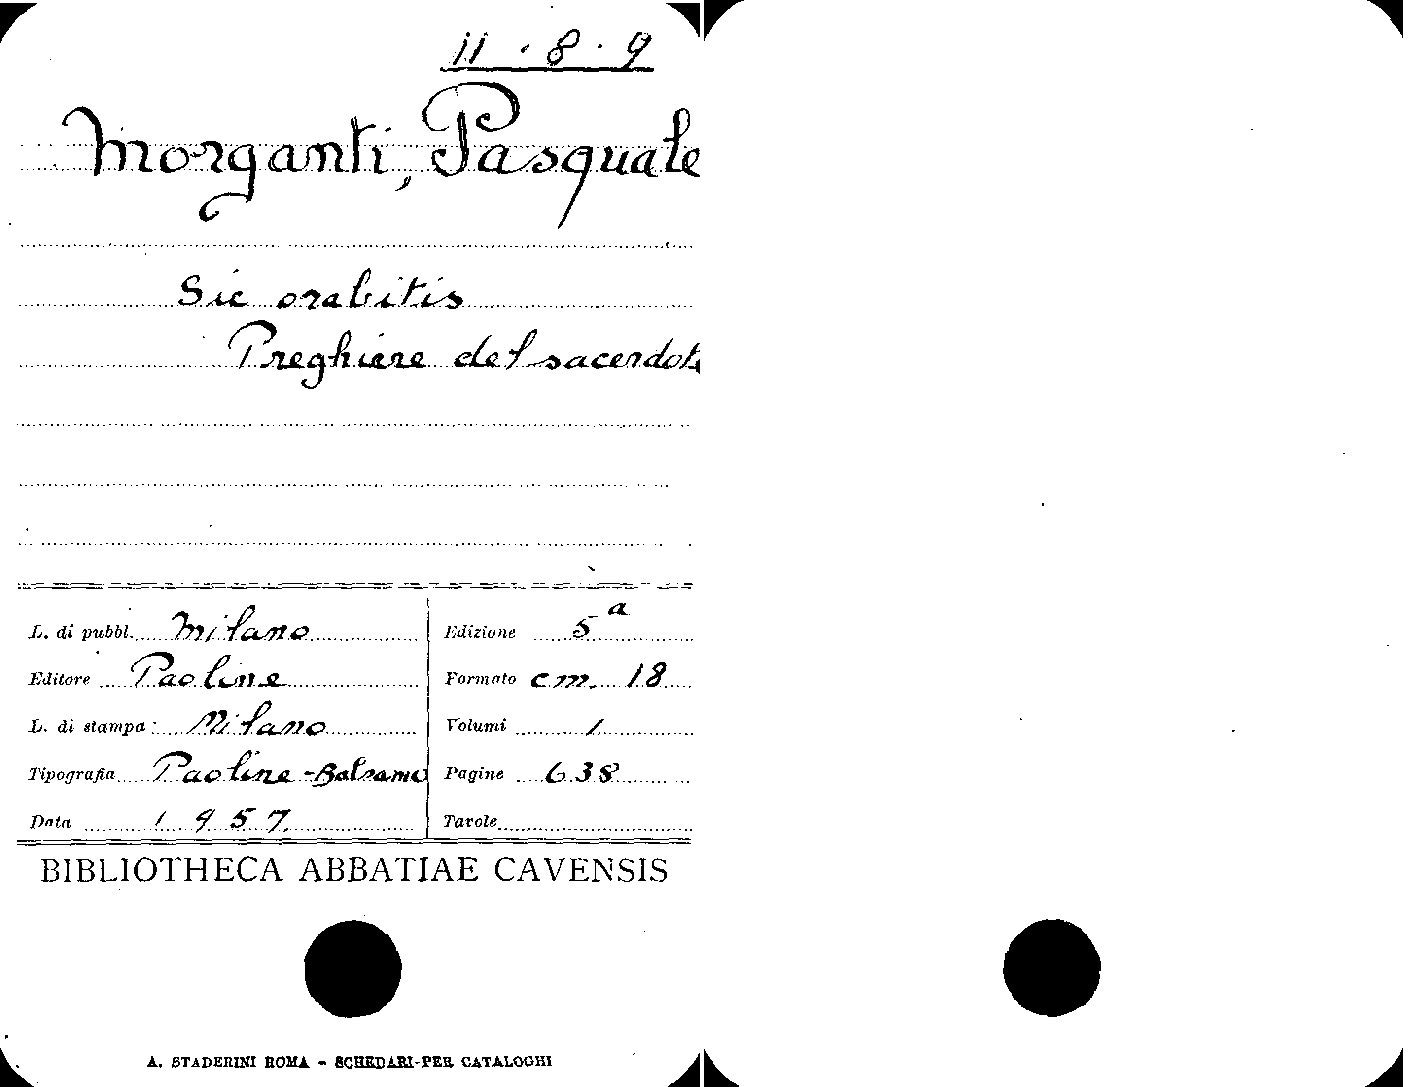 11 · 8 · 9
Morganti, Pasquale
Sic orabitis
Preghiere del sacerdote
L. di pubbl. Milano
Edizione 5ª
Editore Paoline
Formato cm. 18
L. di stampa: Milano
Volumi 1
Tipografia Paoline - Balsamo
Pagine 638
Data 1957.
Tavole
BIBLIOTHECA ABBATIAE CAVENSIS
A. STADERINI ROMA - SCHEDARI-PER CATALOGHI